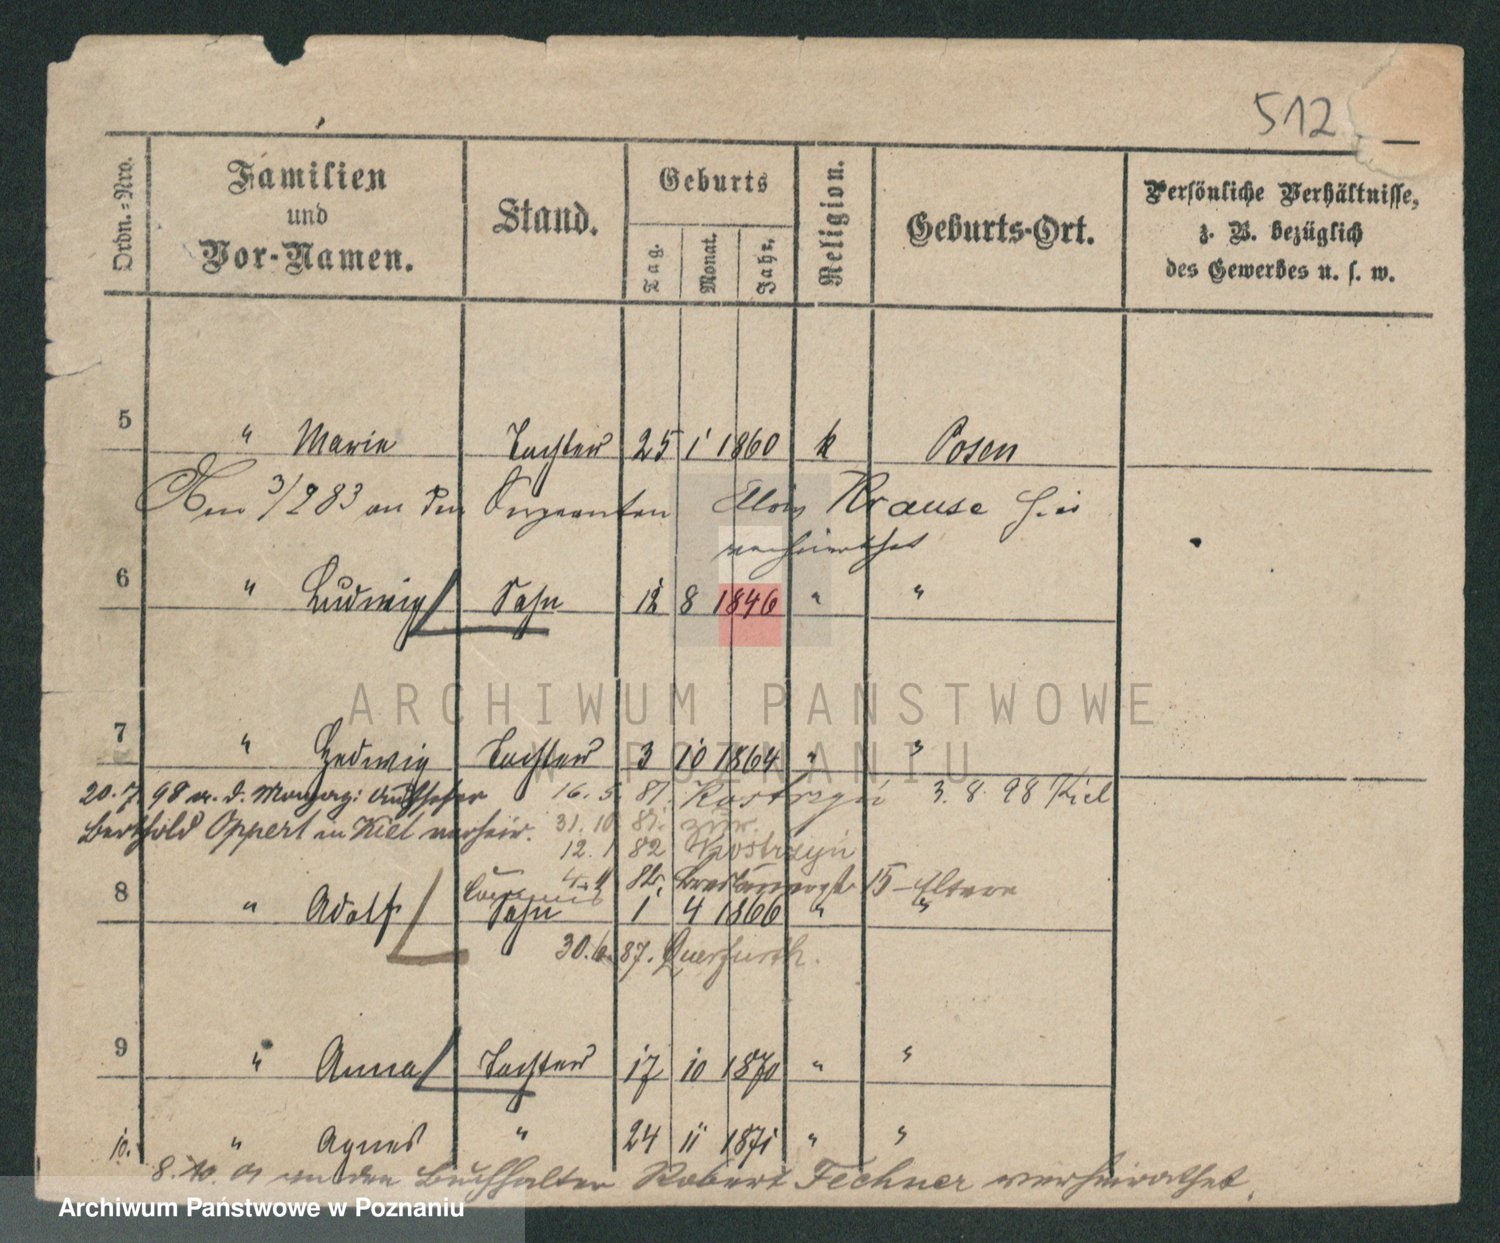 512
Ordn.-Nro.
Familien
und
Vor-Namen.
Stand.
Geburts
Tag.
Monat.
Jahr.
Religion.
Geburts-Ort.
Persönliche Verhältnisse,
z. B. bezüglich
des Gewerbes u. s. w.
5 " Marie Tochter 25 1 1860 k Posen
Am 3/2 83 an den Sergeanten Alois Krause hier
verheirathet
6 " Ludwig Sohn 12 8 1846 " "
ARCHIWUM PAŃSTWOWE
W POZNANIU
7 " Hedwig Tochter 3 10 1864 " "
20.7.98 a. d. Magaz: Aufseher 16.5. 81. Kostrzyn 3.8.98 Kiel
Berthold Oppert in Kiel verheir. 31.10 81. zur.
12.1 82 Kostrzyn
4.4 82. 15 Eltern
8 " Adolf Sohn 1 4 1866 " "
30.6.87. Querfurth.
9 " Anna Tochter 17 10 1870 " "
10. " Agnes " 24 11 1871 " "
8.10.01 an den Buchhalter Robert Fechner verheirathet.
Archiwum Państwowe w Poznaniu